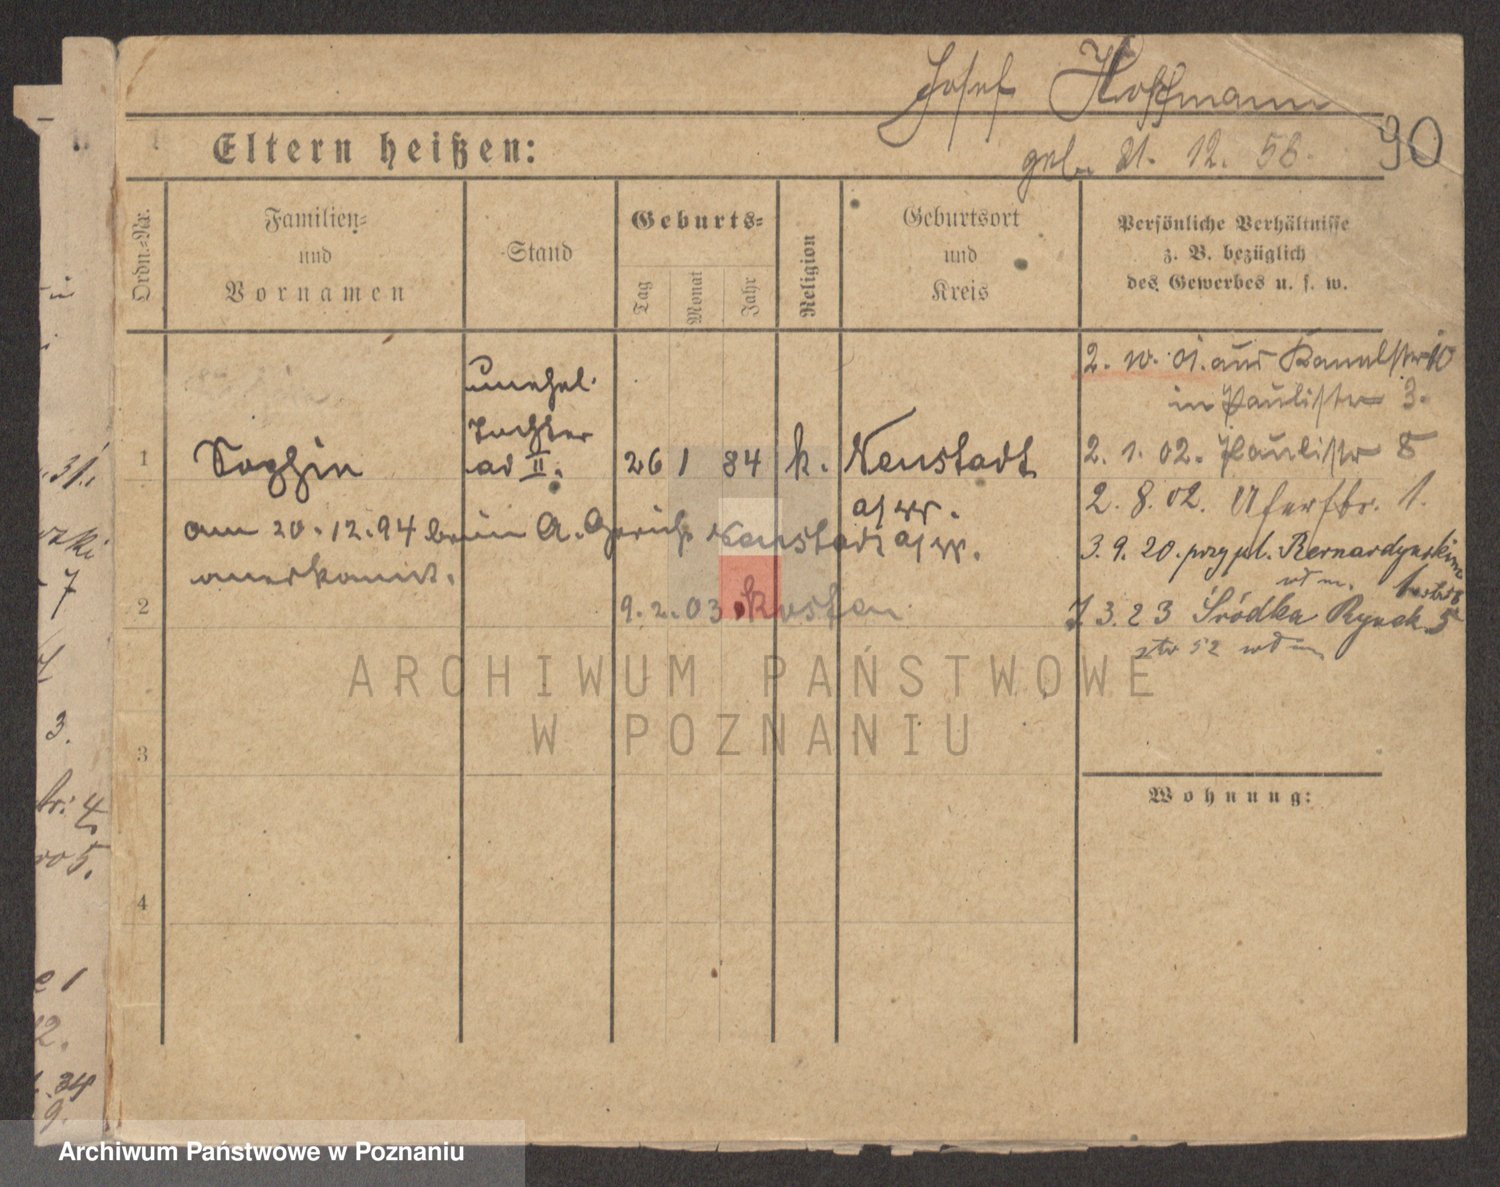 Josef Hoffmann
geb. 21. 12. 58.
90
Eltern heißen:
Ordn.=Nr.
Familien=
und
Vornamen
Stand
Geburts=
Tag
Monat
Jahr
Religion
Geburtsort
und
Kreis
Persönliche Verhältnisse
z. B. bezüglich
des Gewerbes u. s. w.
2. 10. 01. aus Kanalstr 10
in Paulistr 3.
unehel.
Tochter
ad II.
1
Sophie
26 1 84 k. Neustadt
a/W.
2. 1. 02. Paulistr 8
2. 8. 02. Uferstr. 1.
am 20.12.94 beim A. Gericht Neustadt a/W.
anerkannt.
3. 9. 20. przy pl. Bernardyńskim
2
9. 2. 03 Kosten
7. 3. 23 Śródka Rynek 5
str 52
3
Wohnung:
4
ARCHIWUM PAŃSTWOWE
W POZNANIU
31.
7
3.
4
5.
1
2.
34
9.
Archiwum Państwowe w Poznaniu